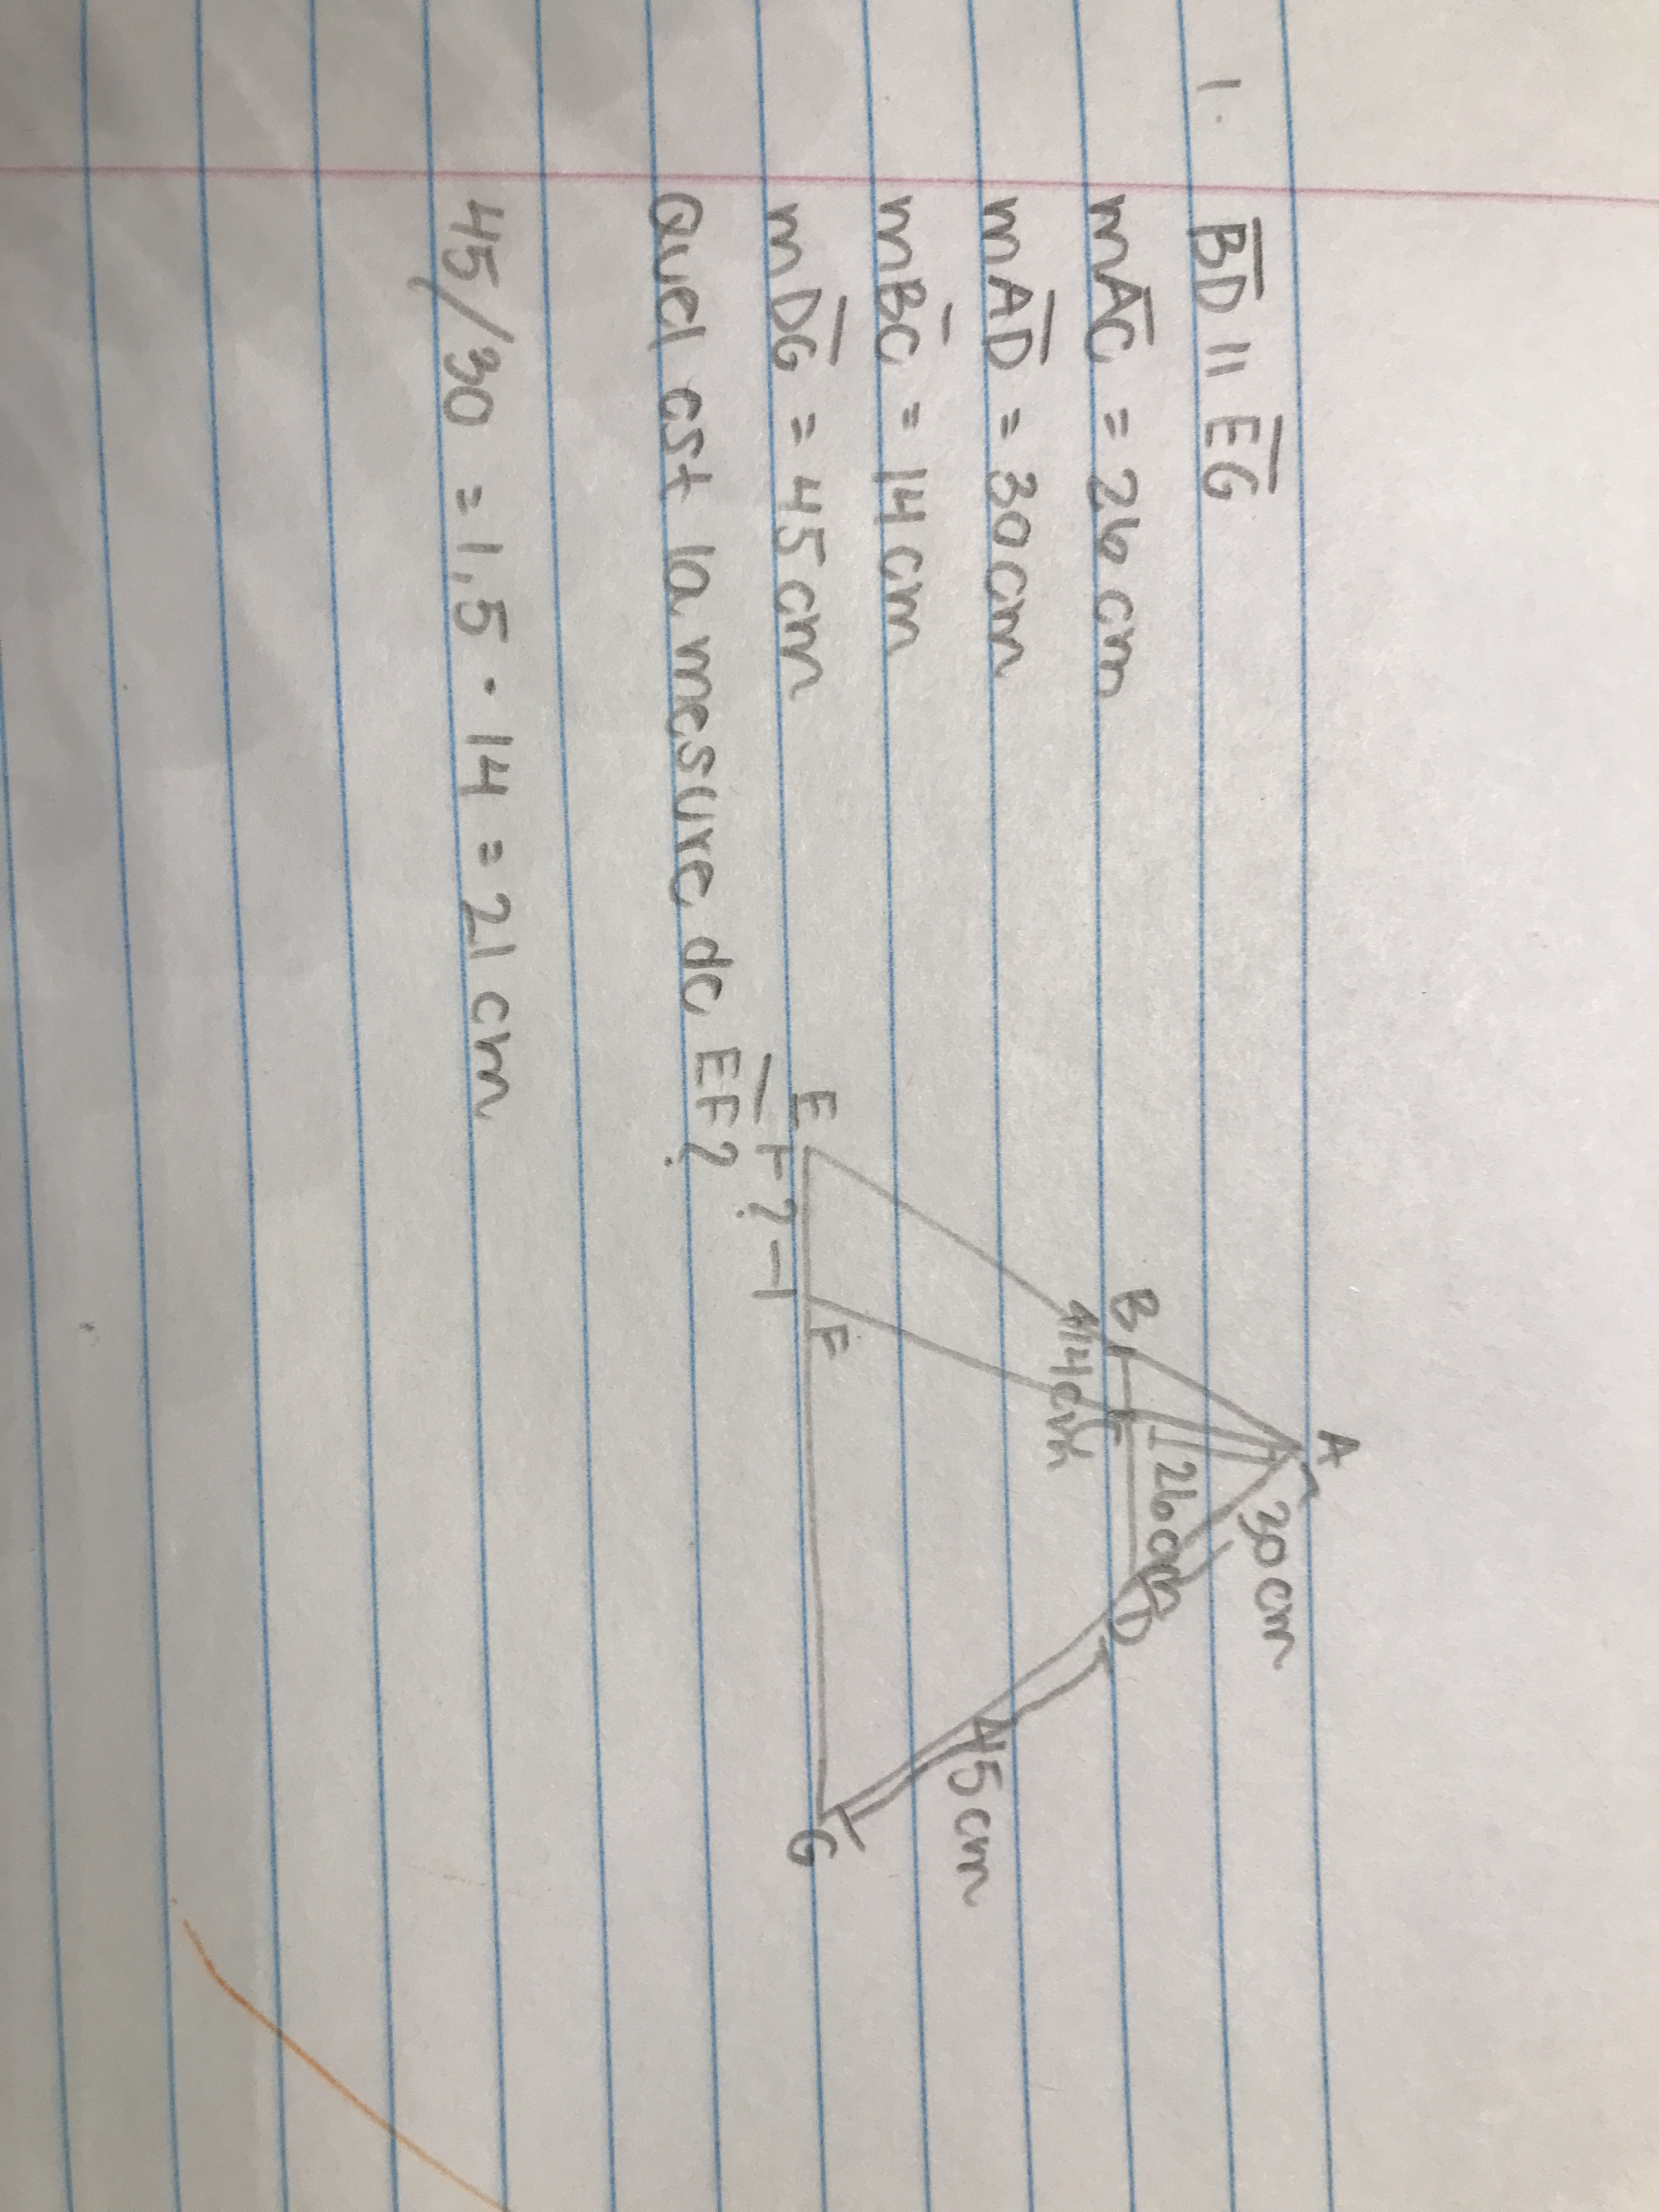 1. BD || EG
mAC = 26 cm
mAD = 30 cm
mBC = 14 cm
mDG = 45 cm
Quel est la mesure de EF?
45/30 = 1,5 · 14 = 21 cm
A
30 cm
B
C
26 cm
D
14 cm
45 cm
E
F
G
?